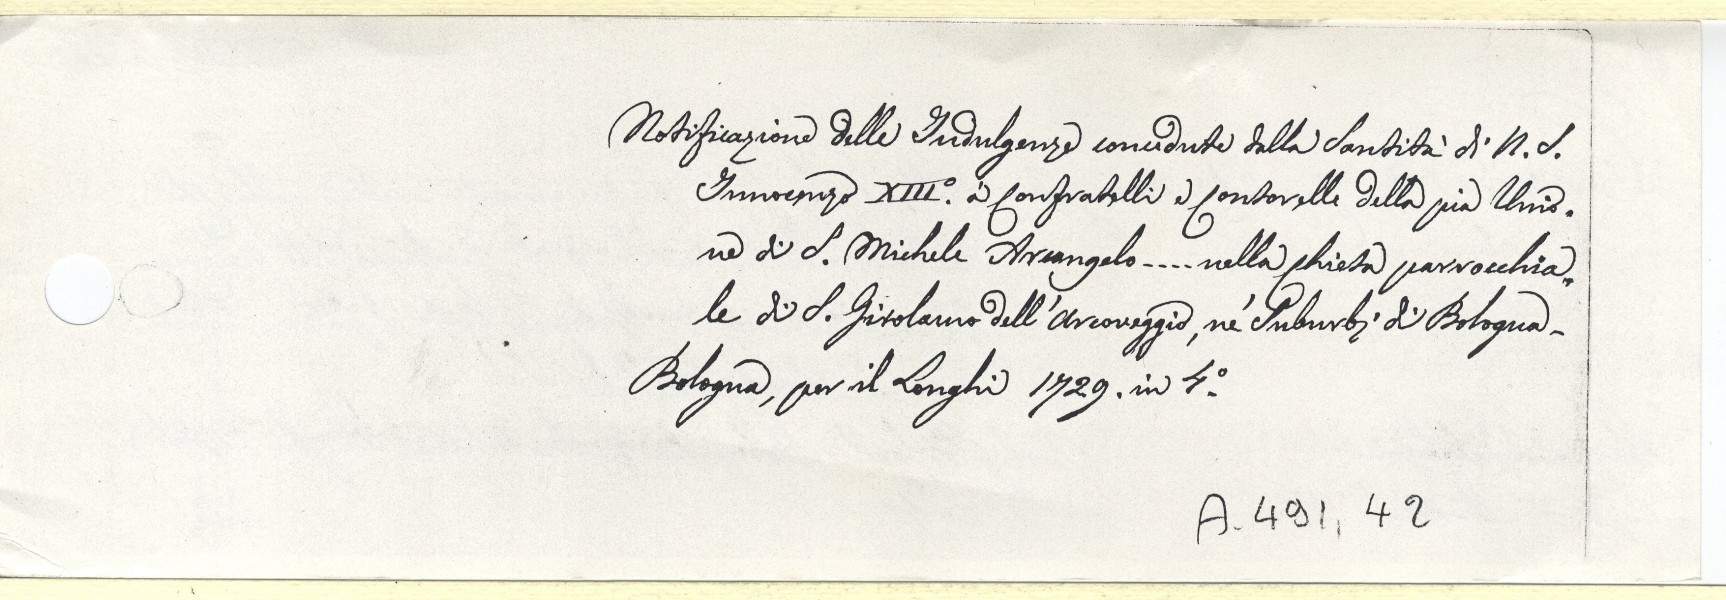 Notificazione delle Indulgenze concedute dalla Santità di N. S.
Innocenzo XIII°. à Confratelli e Consorelle della pia Unio-
ne di S. Michele Arcangelo .... nella Chiesa parrocchia-
le di S. Girolamo dell'Arcoveggio, ne' Suburbj di Bologna -
Bologna, per il Longhi 1729. in 4°.
A. 491, 42